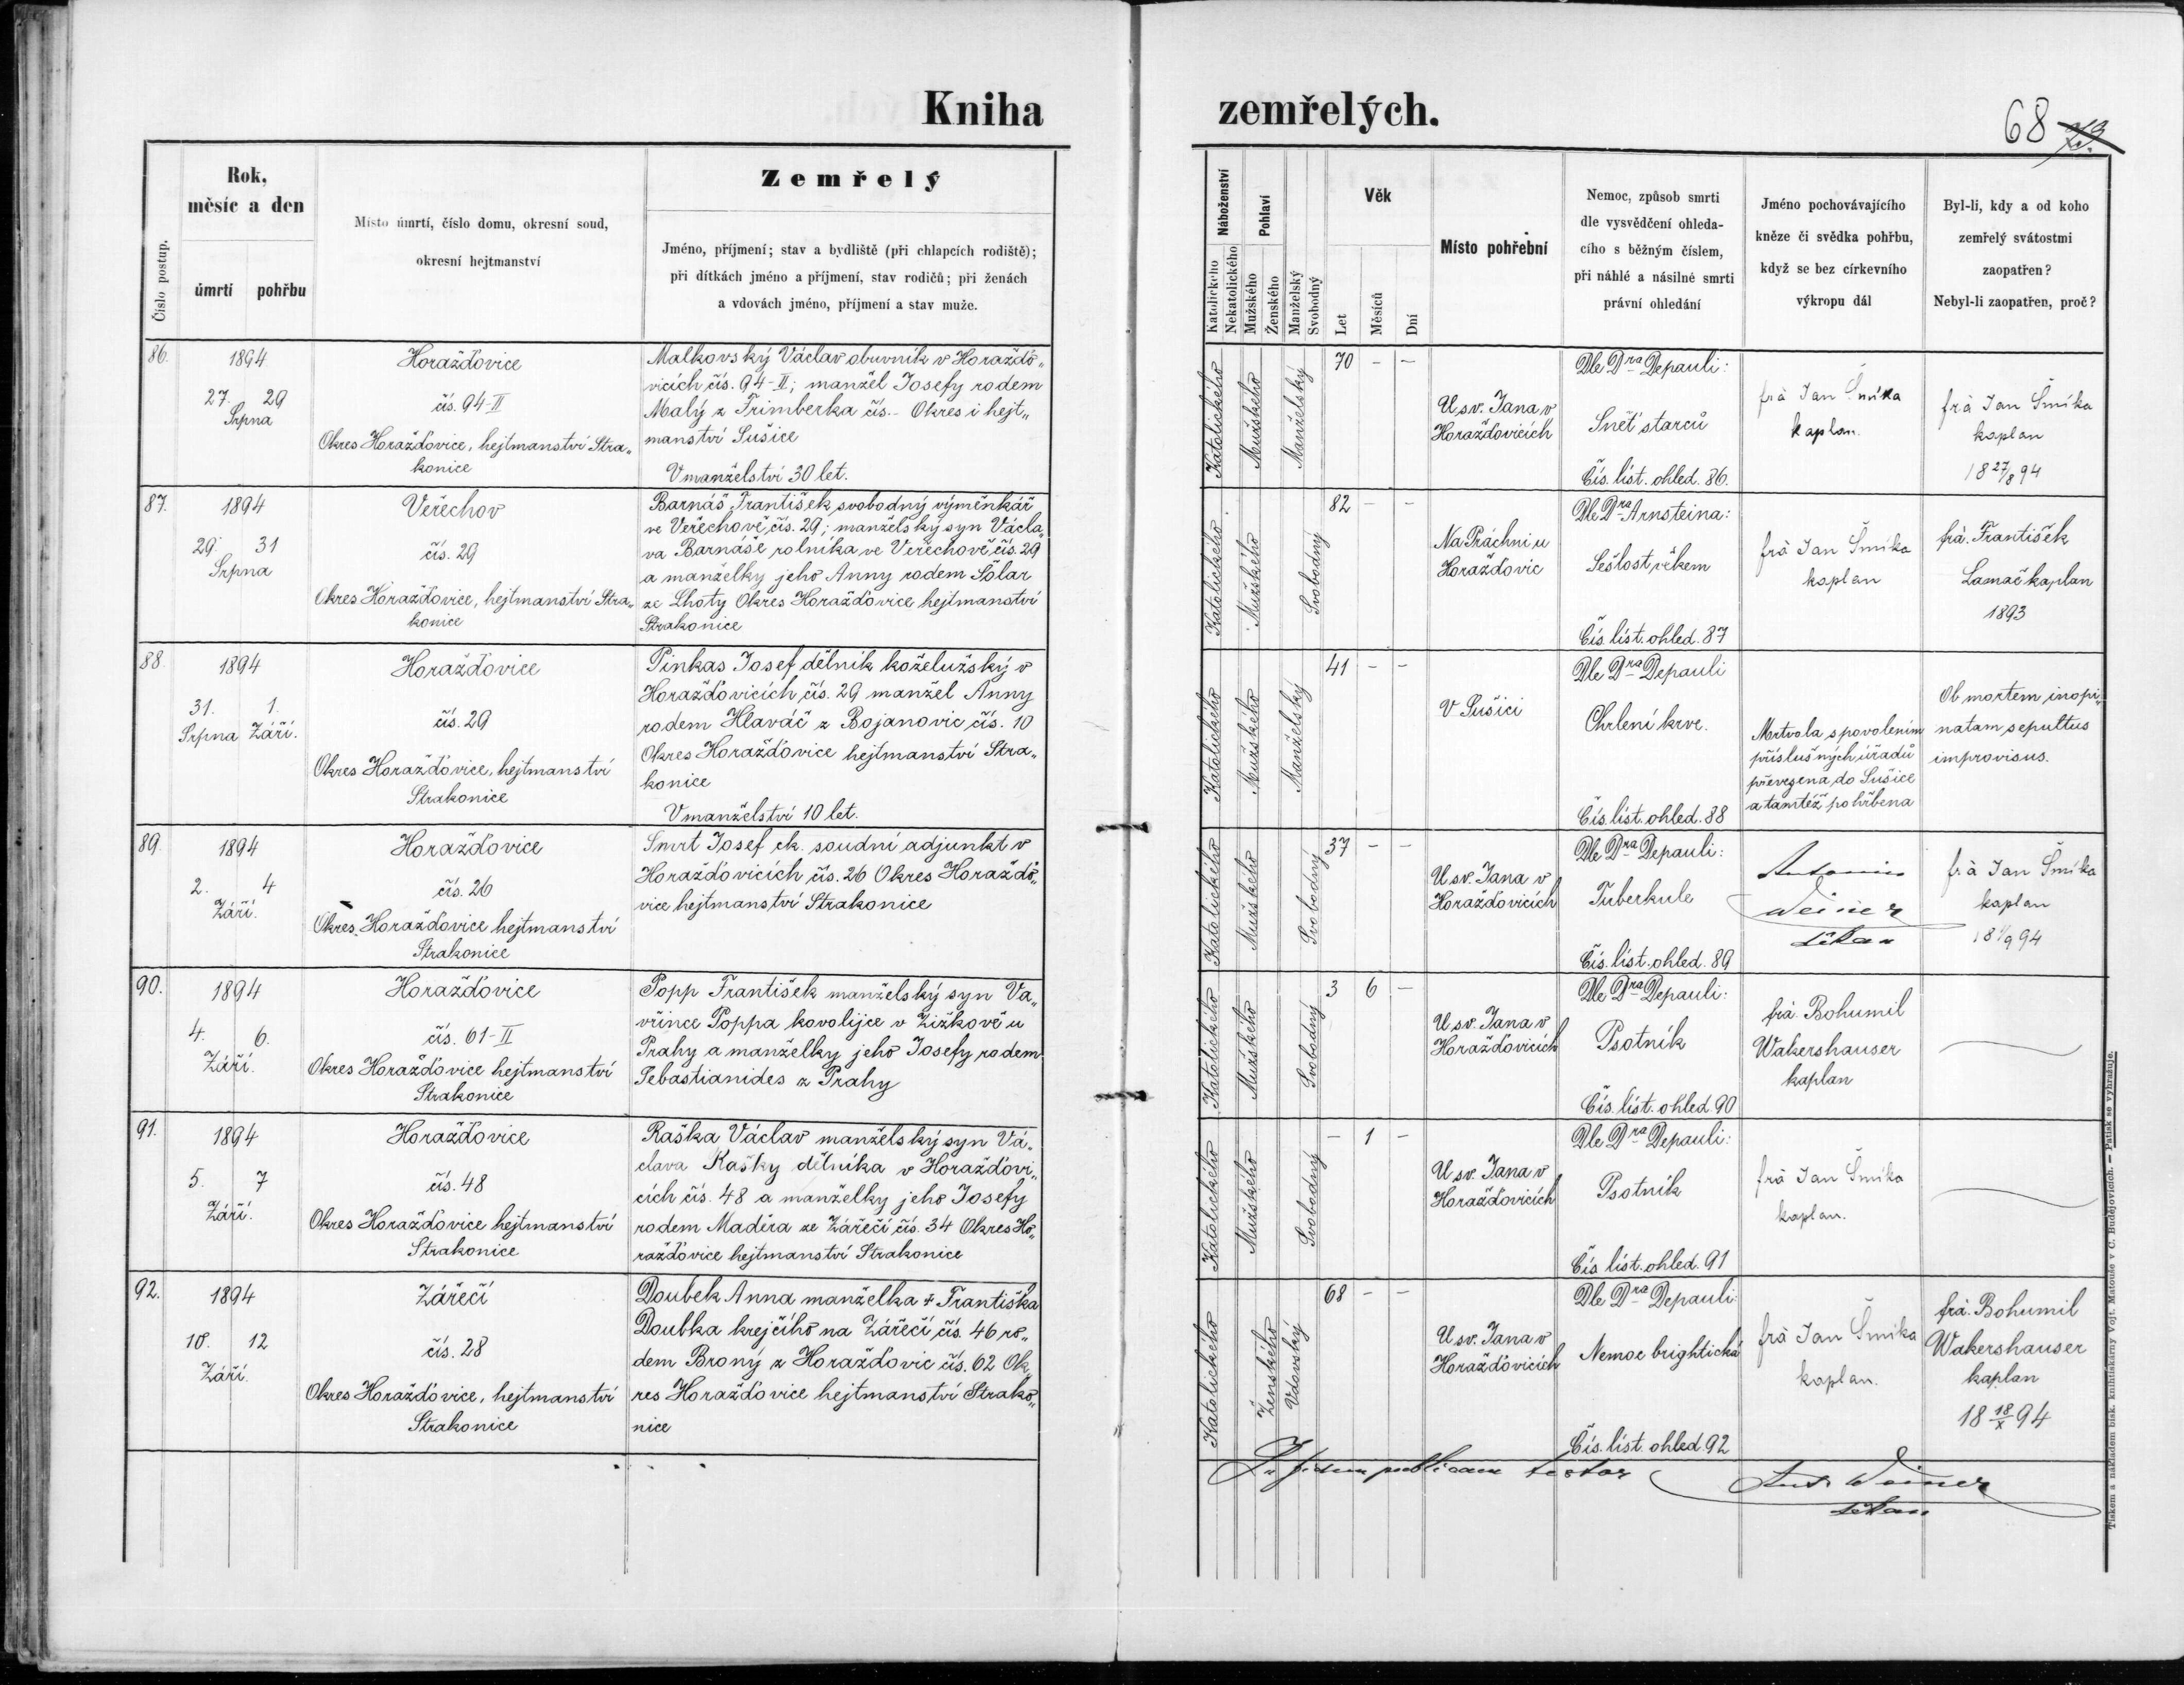 Kniha zemřelých.
68
Číslo postup.
Rok,
měsíc a den
úmrtí
pohřbu
Místo úmrtí, číslo domu, okresní soud,
okresní hejtmanství
Zemřelý
Jméno, příjmení; stav a bydliště (při chlapcích rodiště);
při dítkách jméno a příjmení, stav rodičů; při ženách
a vdovách jméno, příjmení a stav muže.
Náboženství
Katolického
Nekatolického
Pohlaví
Mužského
Ženského
Manželský
Svobodný
Věk
Let
Měsíců
Dní
Místo pohřební
Nemoc, způsob smrti
dle vysvědčení ohleda-
cího s běžným číslem,
při náhlé a násilné smrti
právní ohledání
Jméno pochovávajícího
kněze či svědka pohřbu,
když se bez církevního
výkropu dál
Byl-li, kdy a od koho
zemřelý svátostmi
zaopatřen?
Nebyl-li zaopatřen, proč?
86.
1894
27. 29
Srpna
Horažďovice
čís. 94-II
Okres Horažďovice, hejtmanství Stra„
konice
Malkovský Václav obuvník v Horažďo„
vicích čís. 94-II; manžel Josefy rodem
Malý z Frimberka čís.- Okres i hejt„
manství Sušice
V manželství 30 let.
Katolického
Mužského
Manželský
70 - -
U sv. Jana v
Horažďovicích
Dle Dra Depauli:
Sněť starců
Čís. líst. ohled. 86.
frà Jan Šmíka
kaplan.
frà Jan Šmíka
kaplan
18 27/8 94
87.
1894
29. 31
Srpna
Veřechov
čís. 29
Okres Horažďovice, hejtmanství Stra„
konice
Barnáš František svobodný výměnkář
ve Veřechově čís. 29; manželský syn Václa„
va Barnáše rolníka ve Veřechově čís. 29
a manželky jeho Anny rodem Šolar
ze Lhoty Okres Horažďovice hejtmanství
Strakonice
Katolického
Mužského
Svobodný
82 - -
Na Práchni u
Horažďovic
Dle Dra Arnsteina:
Sešlost věkem
Čís. líst. ohled. 87
frà Jan Šmíka
kaplan
frà. František
Lamač kaplan
1893
88.
1894
31. 1.
Srpna Září.
Horažďovice
čís. 29
Okres Horažďovice, hejtmanství
Strakonice
Pinkas Josef dělník koželužský v
Horažďovicích čís. 29 manžel Anny
rodem Hlaváč z Bojanovic čís. 10
Okres Horažďovice hejtmanství Stra„
konice
V manželství 10 let.
Katolického
Mužského
Manželský
41 - -
V Sušici
Dle Dra Depauli
Chrlení krve.
Čís. líst. ohled. 88
Mrtvola s povolením
příslušných úřadů
převezena do Sušice
a tamtéž pohřbena
Ob mortem inopi„
natam sepultus
improvisus.
89.
1894
2. 4
Září.
Horažďovice
čís. 26
Okres Horažďovice hejtmanství
Strakonice
Smrt Josef ck. soudní adjunkt v
Horažďovicích čís. 26 Okres Horažďo„
vice hejtmanství Strakonice
Katolického
Mužského
Svobodný
37 - -
U sv. Jana v
Horažďovicích
Dle Dra Depauli:
Tuberkule
Čís. líst. ohled. 89
Antonin
Weiner
děkan
frà Jan Šmíka
kaplan
18 1/9 94
90.
1894
4. 6.
Září.
Horažďovice
čís. 61-II
Okres Horažďovice hejtmanství
Strakonice
Popp František manželský syn Va„
vřince Poppa kovolijce v Žižkově u
Prahy a manželky jeho Josefy rodem
Sebastianides z Prahy
Katolického
Mužského
Svobodný
3 6 -
U sv. Jana v
Horažďovicích
Dle Dra Depauli:
Psotník
Čís. líst. ohled. 90
frà. Bohumil
Wakershauser
kaplan
91.
1894
5. 7
Září.
Horažďovice
čís. 48
Okres Horažďovice hejtmanství
Strakonice
Raška Václav manželský syn Vá„
clava Rašky dělníka v Horažďovi„
cích čís. 48 a manželky jeho Josefy
rodem Maděra ze Zářečí čís. 34 Okres Ho„
ražďovice hejtmanství Strakonice
Katolického
Mužského
Svobodný
- 1 -
U sv. Jana v
Horažďovicích
Dle Dra Depauli:
Psotník
Čís. líst. ohled. 91
frà Jan Šmíka
kaplan.
92.
1894
10. 12
Září.
Zářečí
čís. 28
Okres Horažďovice, hejtmanství
Strakonice
Doubek Anna manželka † Františka
Doubka krejčího na Zářečí čís. 46 ro„
dem Brony z Horažďovic čís. 62 Ok„
res Horažďovice hejtmanství Strako„
nice
Katolického
Ženského
Vdovský
68 - -
U sv. Jana v
Horažďovicích
Dle Dra Depauli:
Nemoc brightická
Čís. líst. ohled. 92
frà Jan Šmíka
kaplan.
frà. Bohumil
Wakershauser
kaplan
18 18/X 94
In fidem publicam testor
Ant. Weiner
děkan
Tiskem a nákladem bisk. knihtiskárny Vojt. Matouše v Č. Budějovicích. — Patisk se vyhražuje.